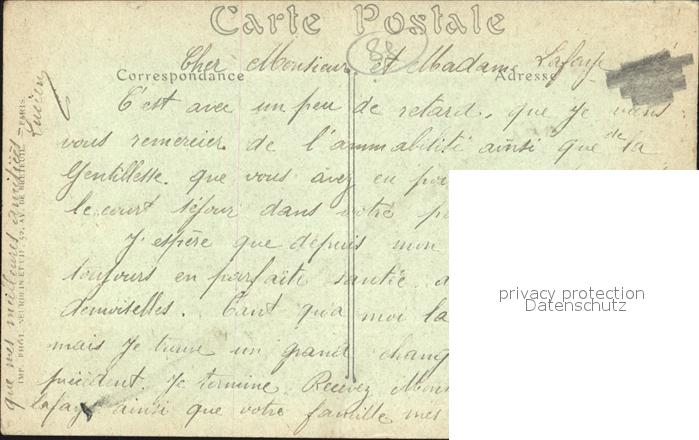 Carte Postale
88
Cher Monsieur et Madame Lafaye
Correspondance Adresse
C'est avec un peu de retard, que je viens
vous remercier de l'ammabilité ainsi que de la
Gentillesse que vous avez eu pou
le court séjour dans votre p
J'espère que depuis mon
toujours en parfaite santée, a
demoiselles. Tant qu'a moi la
mais je tume un grand chang
précédent. Je termine. Recevez Mons
lafaye ainsi que votre famille mes
que mes meilleures amitiés
Lucien
IMP. PHOT. NEURDEIN ET CIE. 52, AV. DE BRETEUIL. PARIS.
privacy protection
Datenschutz